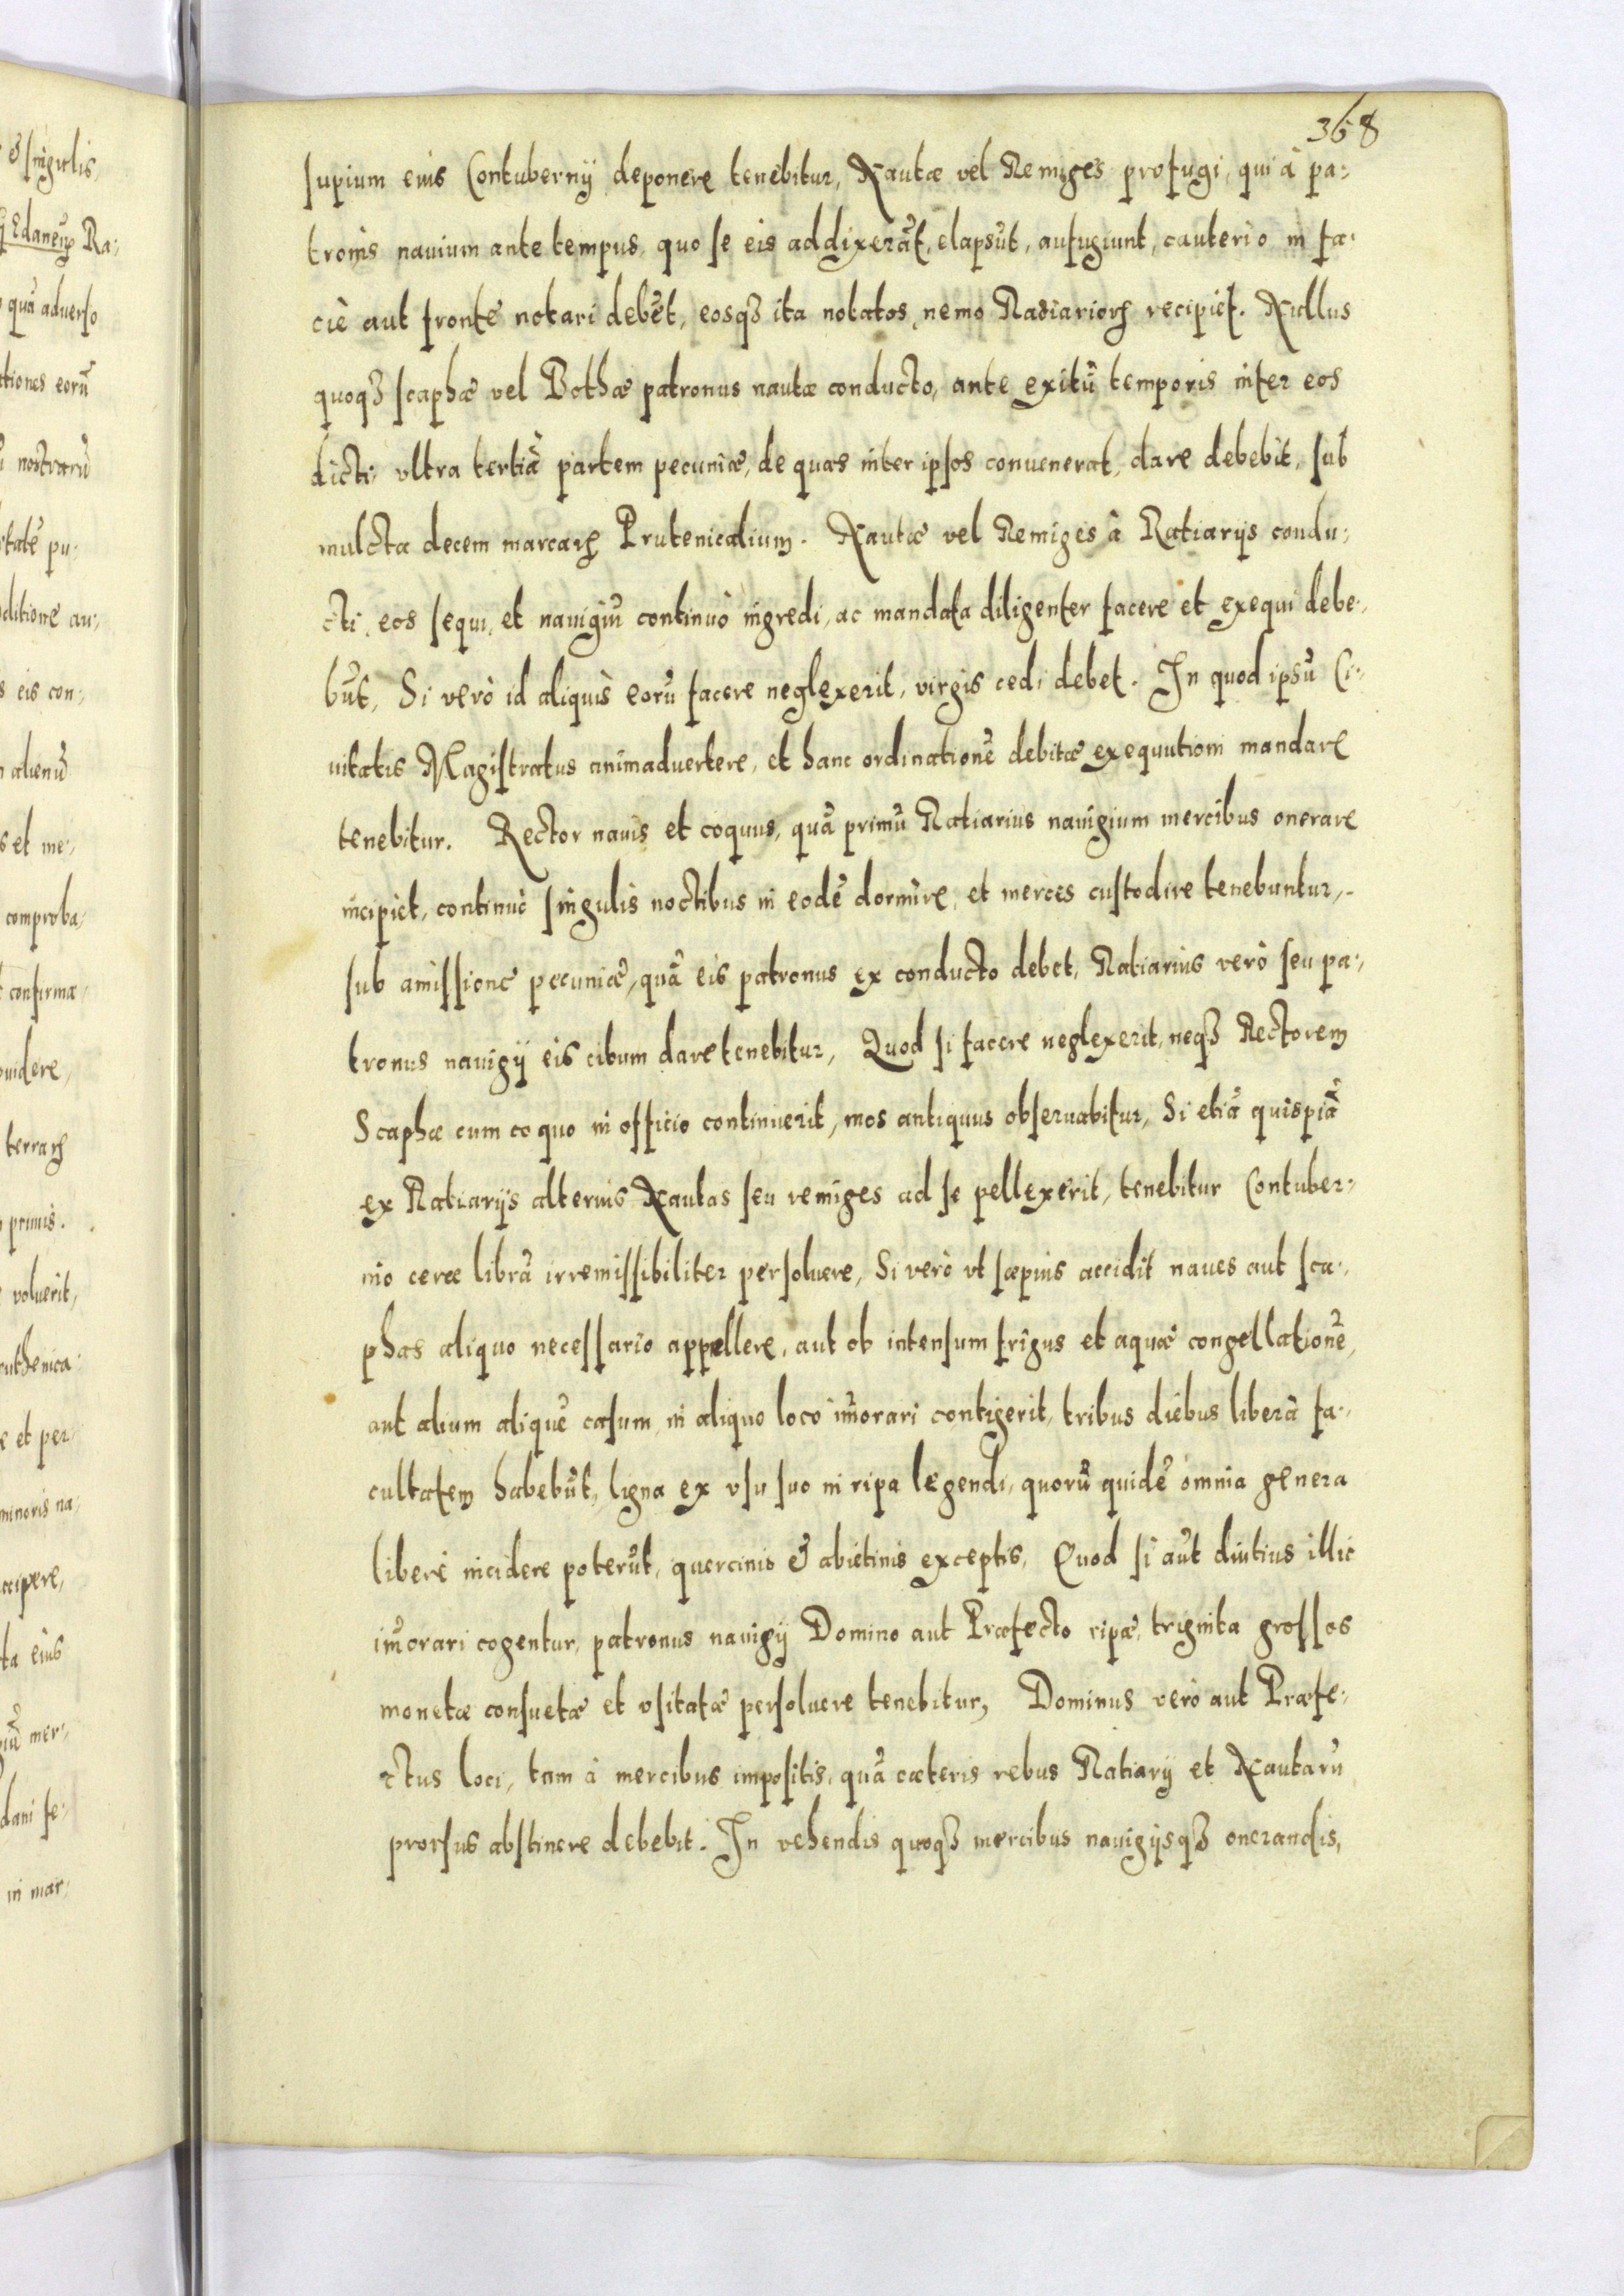 368
supium eius Contubernÿ deponere tenebitur, Nautæ vel Remiges profugi, qui à pa:
tronis nauium ante tempus, quo se eis addixerāt, elapsūt, aufugiunt, cauterio in fa:
ciē aut frontē notari debēt, eosqꝫ ita notatos, nemo Ratiarioꝝ recipiet. Nullus
quoqꝫ scaphæ vel Bothæ patronus nautæ conducto, ante exitū temporis inter eos
dicti, vltra tertiā partem pecuniæ, de quas inter ipsos conuenerat, dare debebit, sub
mulcta decem marcaꝝ Prutenicalium. Nautæ vel Remiges à Ratiarijs condu:
cti, eos sequi, et nauigiū continuò ingredi, ac mandata diligenter facere et exequi debe:
būt, Si verò id aliquis eorū facere neglexerit, virgis cedi debet. In quod ipsū Ci:
uitatis Magistratus animaduertere, et hanc ordinationē debitæ exequutioni mandare
tenebitur. Rector nauis et coquus, quā primū Ratiarius nauigium mercibus onerare
incipiet, continuò singulis noctibus in eodē dormire, et merces custodire tenebuntur,
sub amissione pecuniæ, quā eis patronus ex conducto debet, Ratiarius verò seu pa:
tronus nauigÿ eis cibum dare tenebitur, Quod si facere neglexerit, neqꝫ Rectorem
Scaphæ cum coquo in officio continuerit, mos antiquus obseruabitur, Si etiā quispiā
ex Ratiarijs alterius Nautas seu remiges ad se pellexerit, tenebitur Contuber:
nio ceræ librā irremissibiliter persoluere, Si verò vt sæpius accidit naues aut sca:
phas aliquo necessario appellere, aut ob intensum frigus et aquæ congellationē,
aut alium aliquē casum, in aliquo loco im̄orari contigerit, tribus diebus liberā fa:
cultatem habebūt, ligna ex vsu suo in ripa legendi, quorū quidē omnia genera
liberè incidere poterūt, quercinis & abietinis exceptis, Quod si aūt diutius illic
im̄orari cogentur, patronus nauigÿ Domino aut Præfecto ripæ, triginta grossos
monetæ consuetæ et vsitatæ persoluere tenebitur, Dominus verò aut Præfe:
ctus loci, tam à mercibus impositis, quā cæteris rebus Ratiarÿ et Nautarū
prorsus abstinere debebit. In vehendis quoqꝫ mercibus nauigijsqꝫ onerandis,